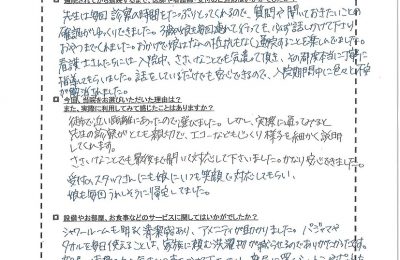 先生は毎回 診察の時間をたっぷりとってくれるので、質問や聞いておきたいことの
確認がゆっくりできました。3歳の娘を毎回連れて行っても、必ず話しかけて下さり
あやつまてくれました。おかげで娘は病院への抵抗もなく通院することを楽しんでました。
看護士さんたちには入院中、ささいなことでも気遣って頂き、その都度本当に丁寧に
指導してもらいました。話をしているだけでも安心できるので、入院期間中に色々と不安
が解消されました。
■今回、当院をお選びいただいた理由は?
また、実際に利用してみて感じたことはありますか?
自宅から近い距離にあったので選びました。しかし、実際に通ってみると
先生の診察がとても親切で、エコーなどもじっくり様子を細かく説明
してくれます。
ささいなことでも最後まで聞いて対応して下さいました。かなり安心できました。
受付のスタッフさんにも娘にいつも笑顔で対応してもらい、
娘も毎回うれしそうに帰宅してました。
■設備やお部屋、お食事などのサービスに関してはいかがでしたか?
シャワールームも明るく清潔感あり、アメニティが助かりました。パジャマや
タオルを毎日使えることは、家族に頼む洗濯物が減らせるのでありがたかったです。